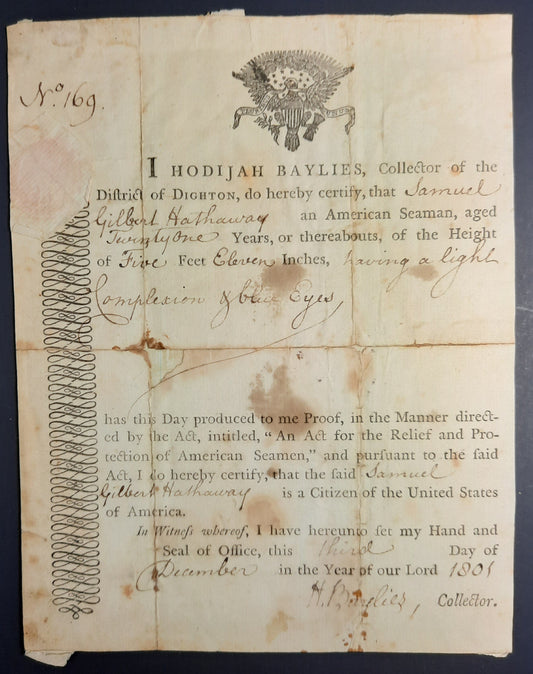 No. 169.
I HODIJAH BAYLIES, Collector of the
District of DIGHTON, do hereby certify, that Samuel
Gilbert Hathaway an American Seaman, aged
Twenty One Years, or thereabouts, of the Height
of Five Feet Eleven Inches, having a light
Complexion & blue Eyes
has this Day produced to me Proof, in the Manner direct-
ed by the Act, intitled, "An Act for the Relief and Pro-
tection of American Seamen," and pursuant to the said
Act, I do hereby certify, that the said Samuel
Gilbert Hathaway is a Citizen of the United States
of America.
In Witness whereof, I have hereunto set my Hand and
Seal of Office, this third Day of
December in the Year of our Lord 1801
H. Baylies, Collector.